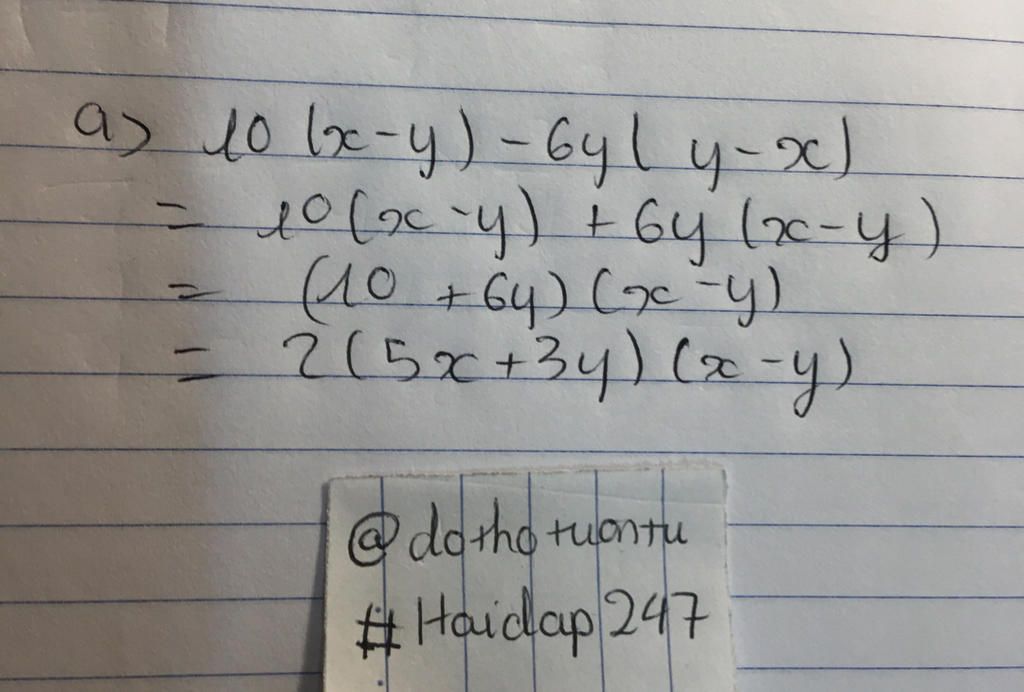 a> 10 (x-y) - 6y ( y - x)
= 10 (x - y) + 6y (x - y )
= (10 + 6y) (x - y)
= 2 (5x + 3y) (x - y)
@dothotuontu
#Hoidap247